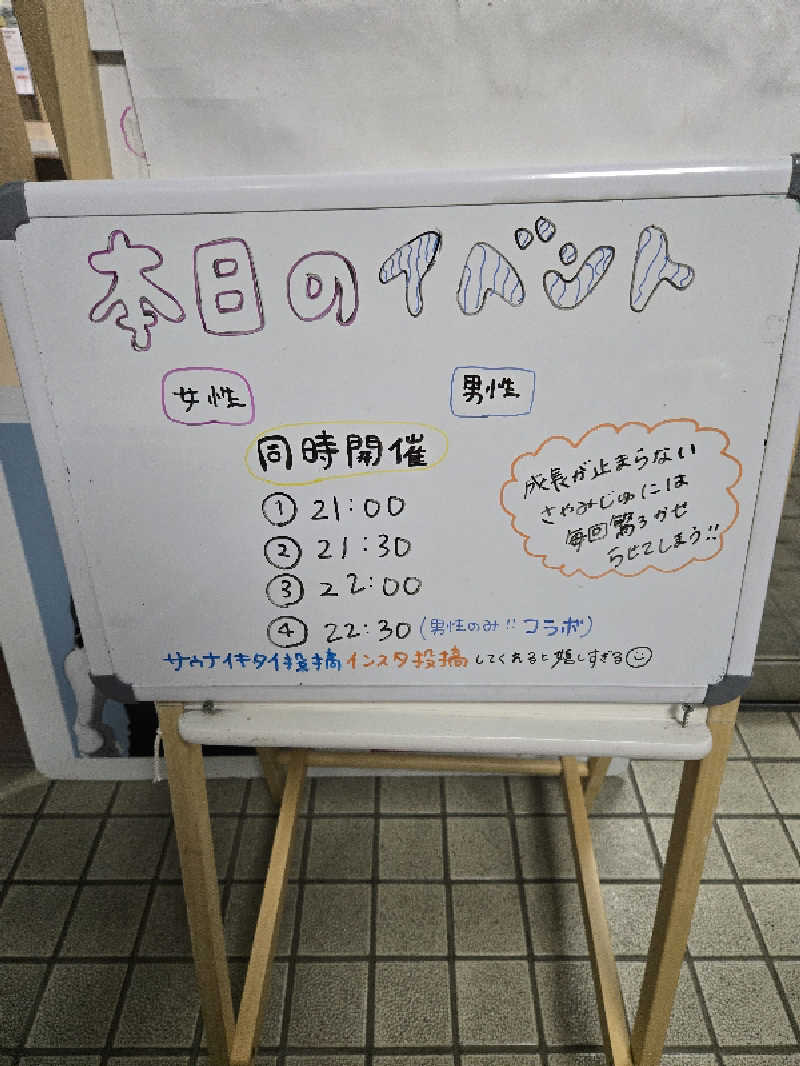 本日のイベント
女性
男性
同時開催
① 21:00
② 21:30
③ 22:00
④ 22:30 (男性のみ!! コラボ)
成長が止まらない
さやみじゅには
毎回驚ろかせ
らせてしまう!!
サウナイキタイ投稿 インスタ投稿 してくれると嬉しすぎる